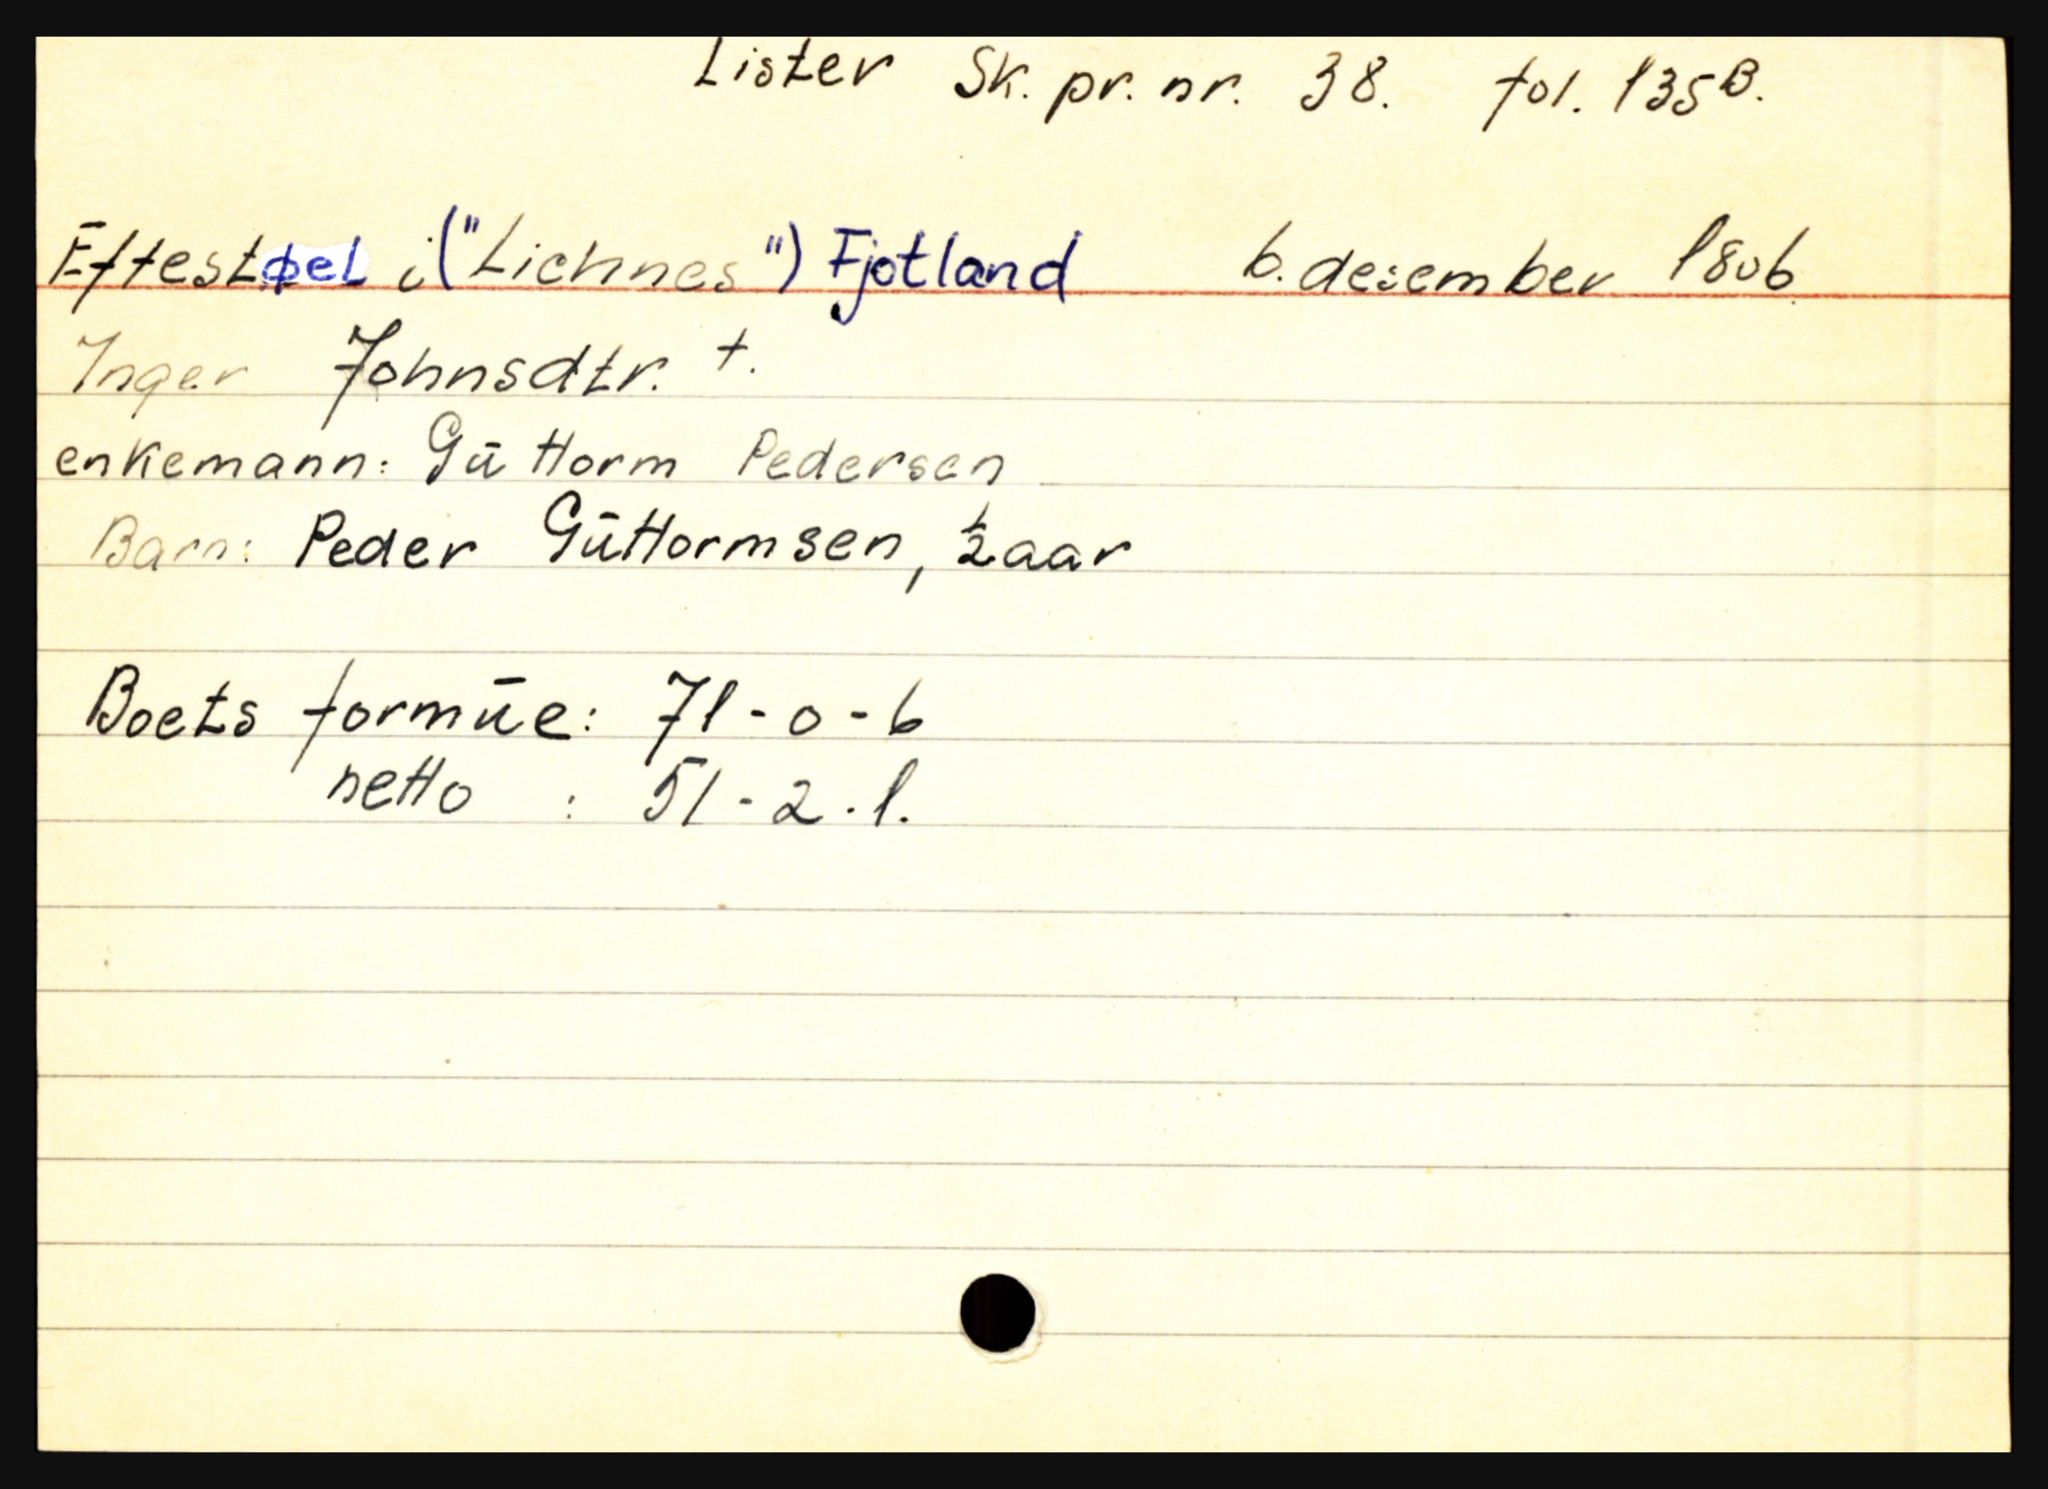 Lister Sk. pr. nr. 38. fol. 135 B.
Eftestøel i ("Lichnes") Fjotland 6. desember 1806
Inger Johnsdtr. +.
enkemann: Gūttorm Pedersen
Barn: Peder Gūttormsen, ½ aar
Boets formūe: 71 - 0 - 6
netto : 51 - 2 - 1.